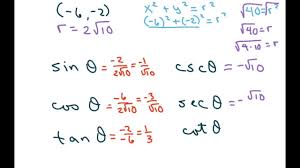 (-6,-2)  x² + y² = r²  √40 = r²
r = 2√10  (-6)² + (-2)² = r²  √40 = r
√4·10 = r
sin θ = -2/2√10 = -1/√10  csc θ = -√10
cos θ = -6/2√10 = -3/√10  sec θ = -√10
tan θ = -2/-6 = 1/3  cot θ